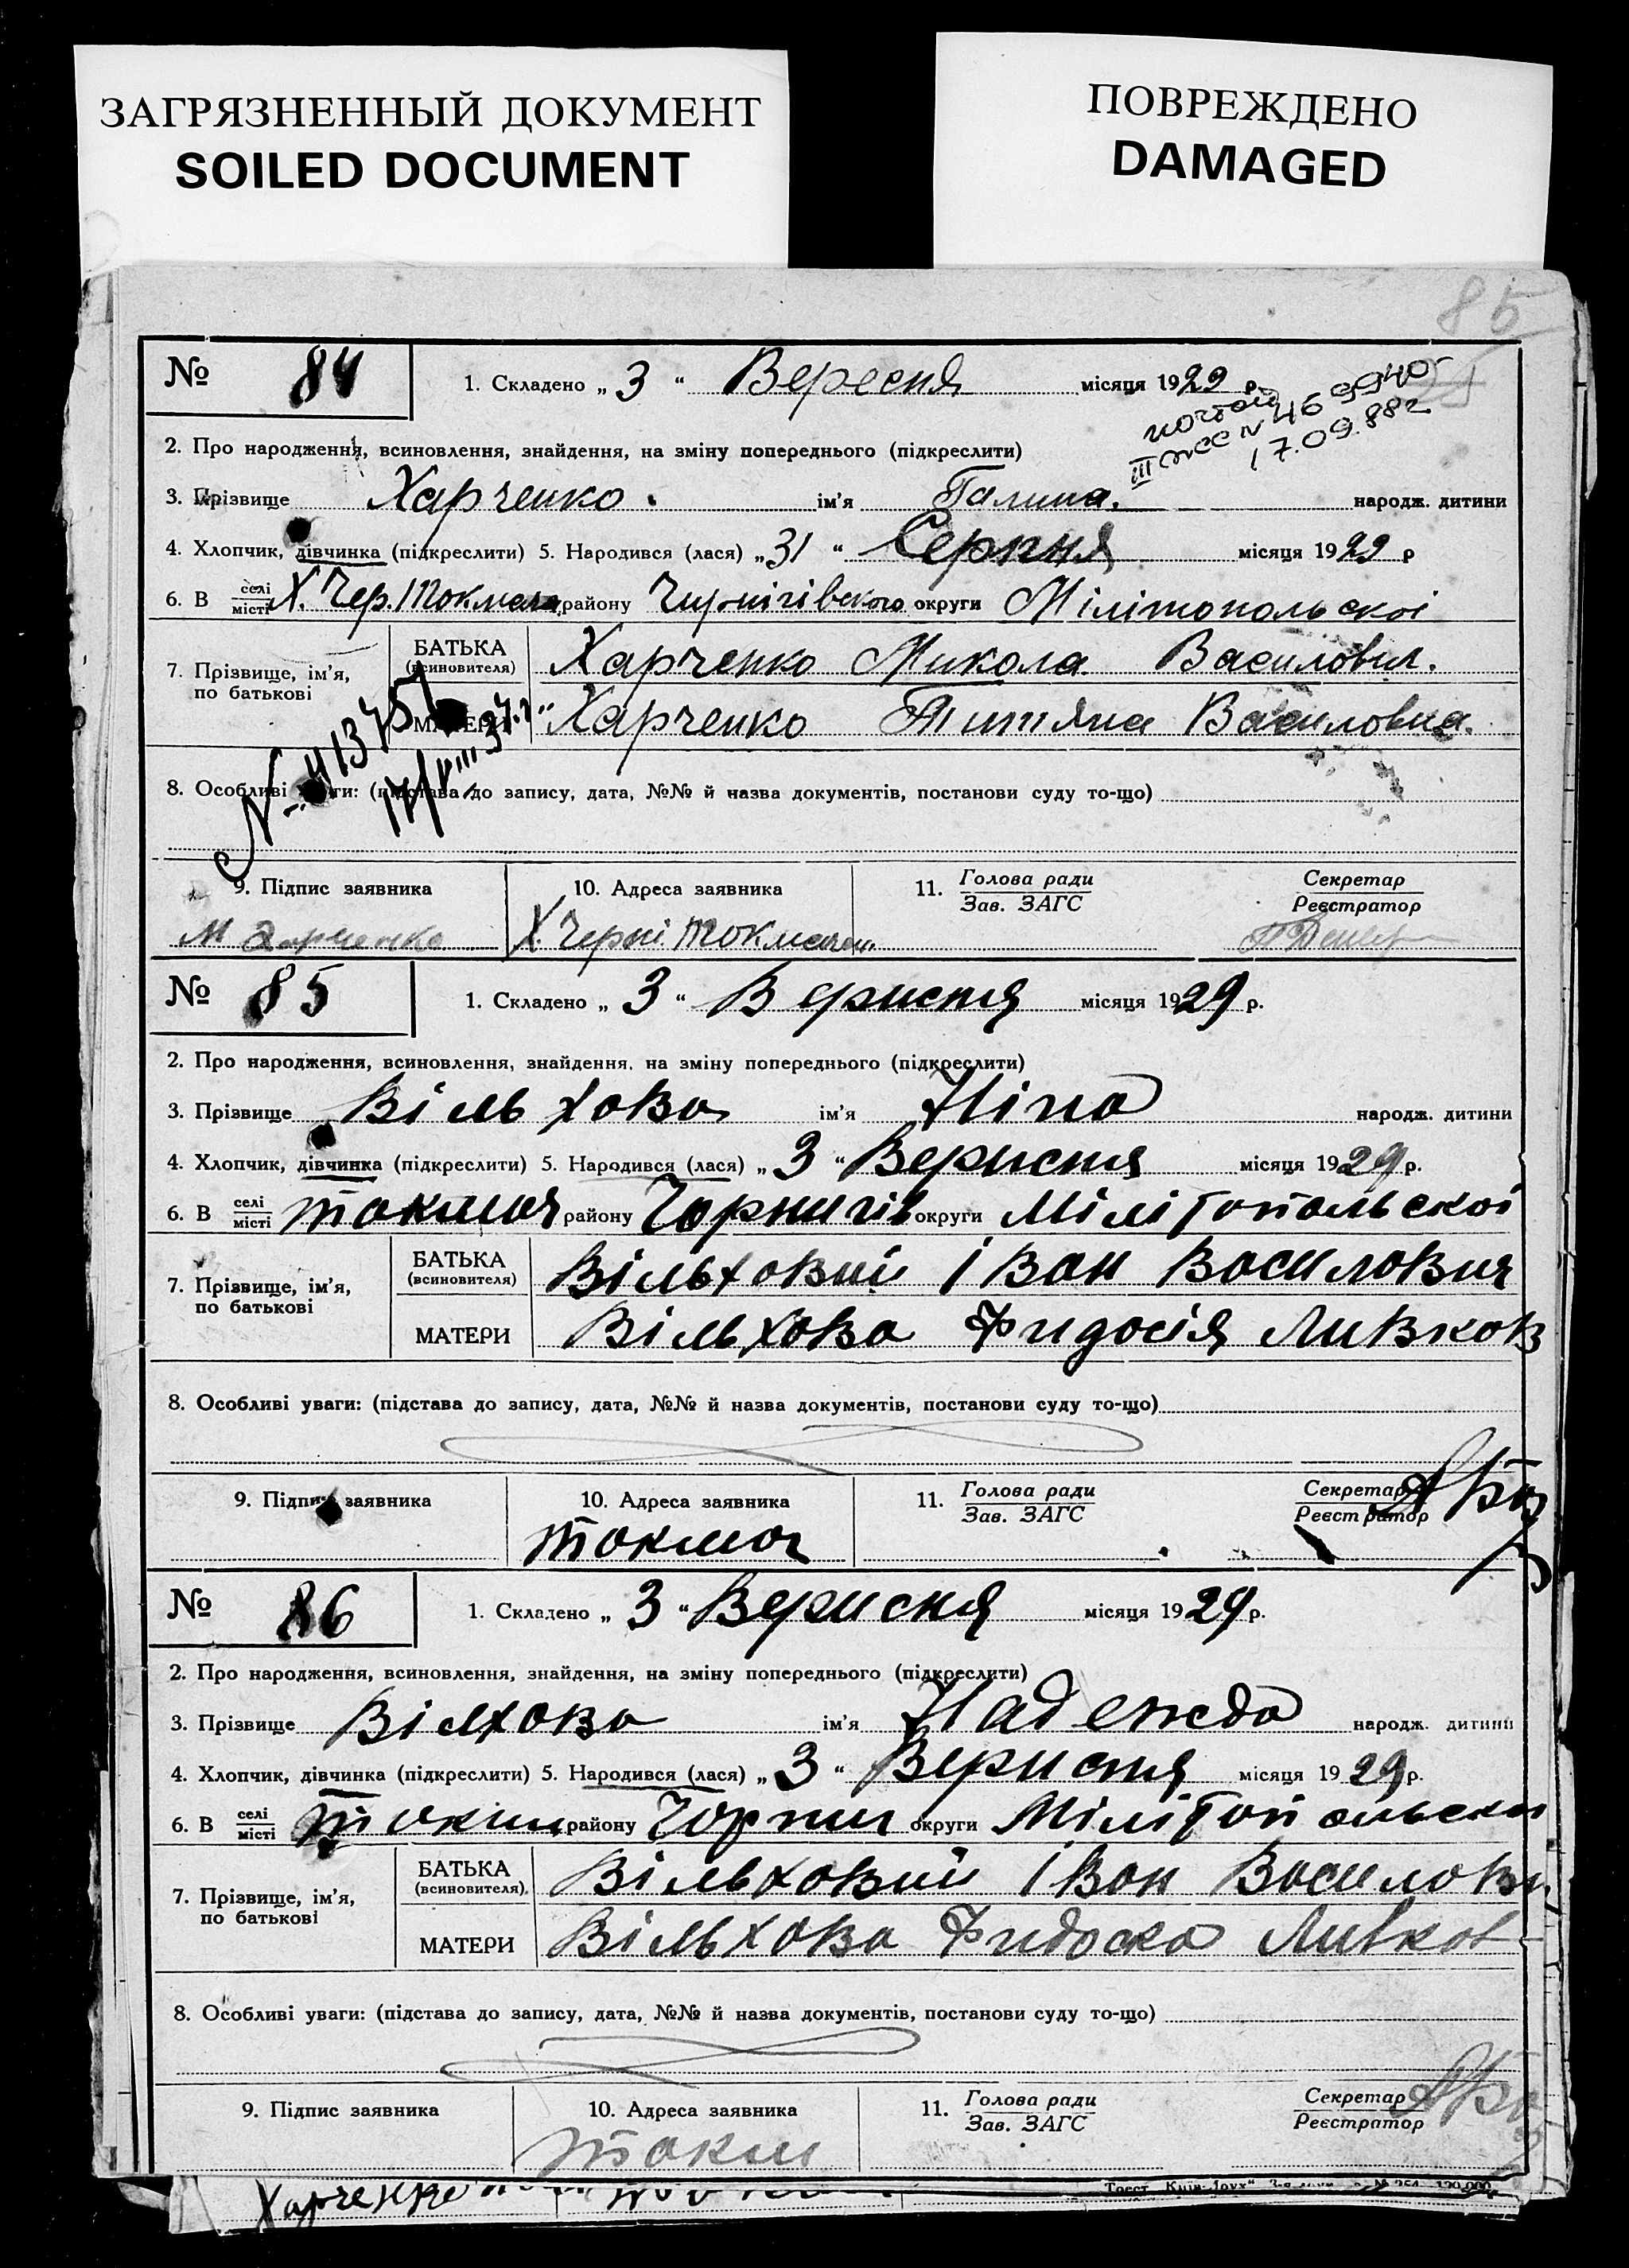 ЗАГРЯЗНЕННЫЙ ДОКУМЕНТ
SOILED DOCUMENT
ПОВРЕЖДЕНО
DAMAGED
85
№ 84 1. Складено „ 3 “ Вересня місяця 1929 р.
17.09.88г
2. Про народження, всиновлення, знайдення, на зміну попереднього (підкреслити)
3. Прізвище Харченко. ім'я Галина. народж. дитини
4. Хлопчик, дівчинка (підкреслити) 5. Народився (лася) „ 31 “ Серпня місяця 1929 р
6. В селі/місті Х. Чер. Токмача району Чирнігівского округи Мілітопольскоі
7. Прізвище, ім'я, по батькові БАТЬКА (всиновителя) Харченко Микола Василович.
МАТЕРИ Харченко Титяна Василовна.
8. Особливі уваги: (підстава до запису, дата, №№ й назва документів, постанови суду то-що)
9. Підпис заявника 10. Адреса заявника 11. Голова ради/Зав. ЗАГС Секретар/Реєстратор
М Харченко Х. Черні. Токмачен.
№ 85 1. Складено „ 3 “ Верисня місяця 1929 р.
2. Про народження, всиновлення, знайдення, на зміну попереднього (підкреслити)
3. Прізвище Вільхова ім'я Ніна народж. дитини
4. Хлопчик, дівчинка (підкреслити) 5. Народився (лася) „ 3 “ Верисня місяця 1929 р.
6. В селі/місті Токмач району Чорнигів округи Мілітопольскоі
7. Прізвище, ім'я, по батькові БАТЬКА (всиновителя) Вільховий Іван Василович
МАТЕРИ Вільхова Фидосія Ливков
8. Особливі уваги: (підстава до запису, дата, №№ й назва документів, постанови суду то-що)
9. Підпис заявника 10. Адреса заявника 11. Голова ради/Зав. ЗАГС Секретар/Реєстратор
Токмач
№ 86 1. Складено „ 3 “ Верисня місяця 1929 р.
2. Про народження, всиновлення, знайдення, на зміну попереднього (підкреслити)
3. Прізвище Вілхова ім'я Надежда народж. дитини
4. Хлопчик, дівчинка (підкреслити) 5. Народився (лася) „ 3 “ Верисня місяця 1929 р.
6. В селі/місті Токм району Чорниг округи Мілітопольски
7. Прізвище, ім'я, по батькові БАТЬКА (всиновителя) Вільховий Іван Василови
МАТЕРИ Вільхова Фидоска Ливков
8. Особливі уваги: (підстава до запису, дата, №№ й назва документів, постанови суду то-що)
9. Підпис заявника 10. Адреса заявника 11. Голова ради/Зав. ЗАГС Секретар/Реєстратор
Токм
Харченко